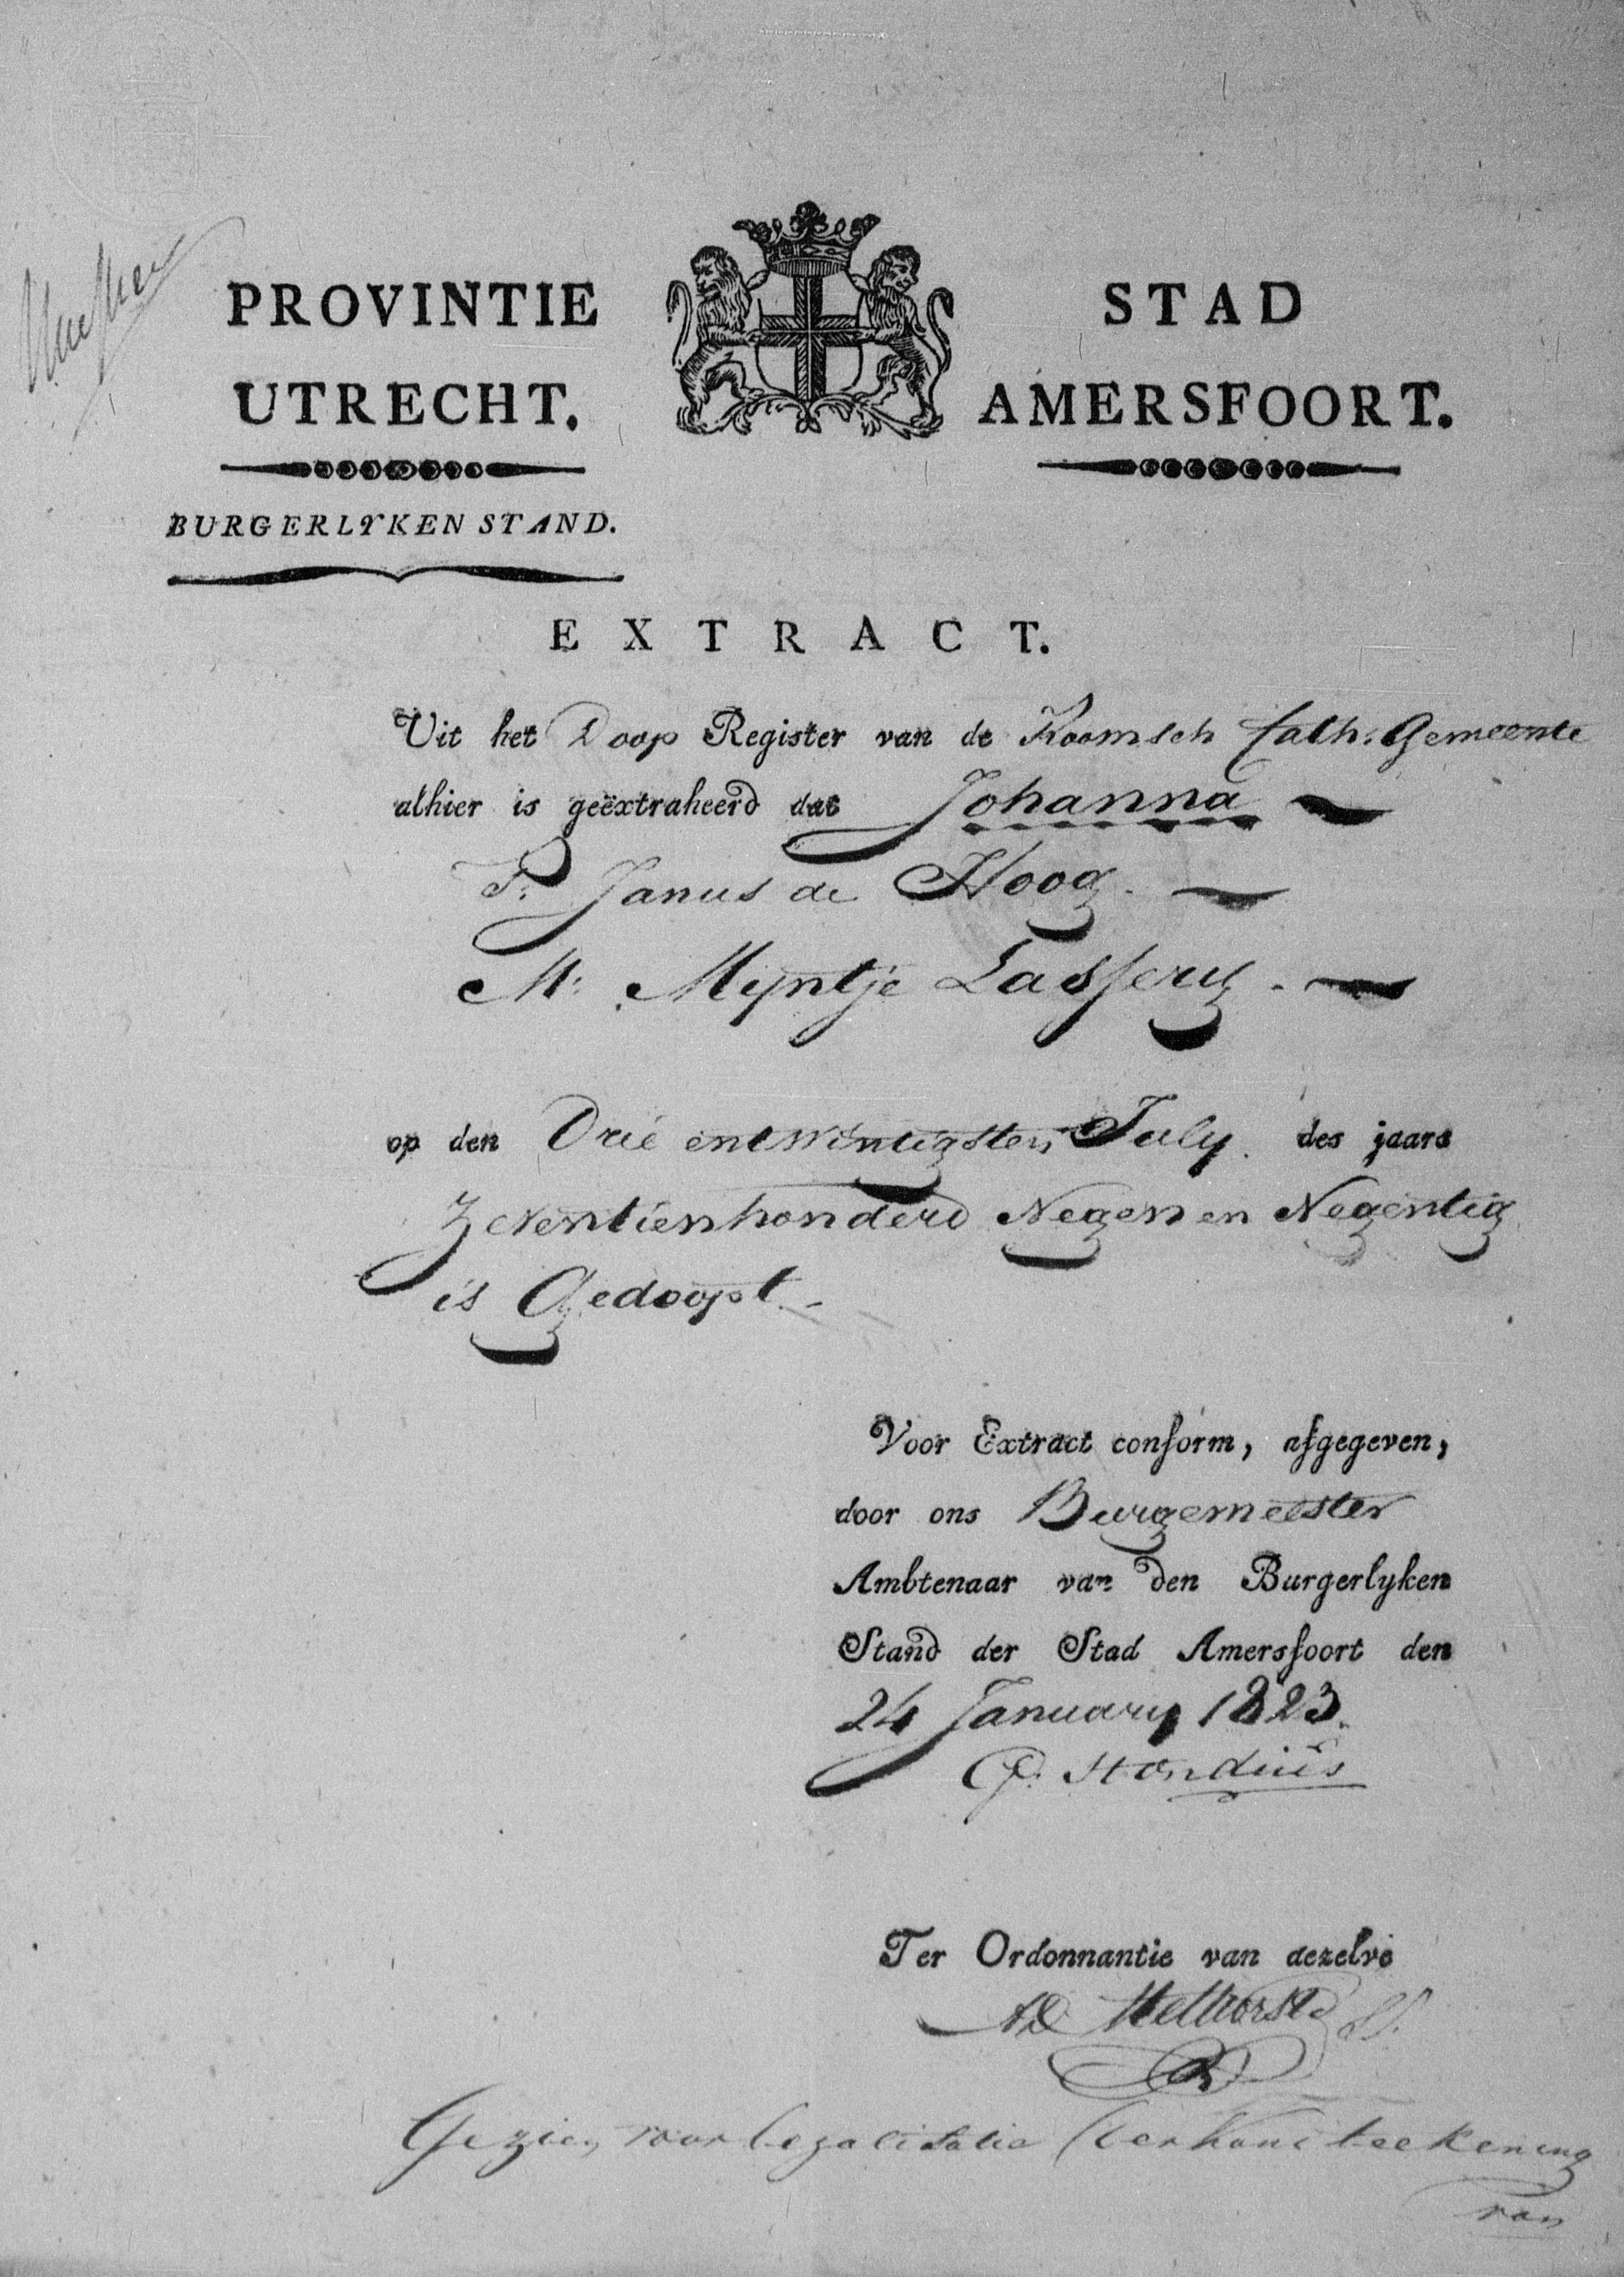 PROVINTIE
UTRECHT.
STAD
AMERSFOORT.
BURGERLYKEN STAND.
EXTRACT.
Uit het Doop Register van de Roomsch Cath: Gemeente
alhier is geëxtraheerd dat Johanna
P: Janus de Hoog.
M: Myntje Lassery.
op den Drie entwintigsten July. des jaars
Zeventienhonderd Negen en Negentig
is Gedoopt.
Voor Extract conform, afgegeven,
door ons Burgemeester
Ambtenaar van den Burgerlyken
Stand der Stad Amersfoort den
24 January 1823.
Ter Ordonnantie van dezelve
Methorst
Gezien voor Legalisatie der handteekening
van